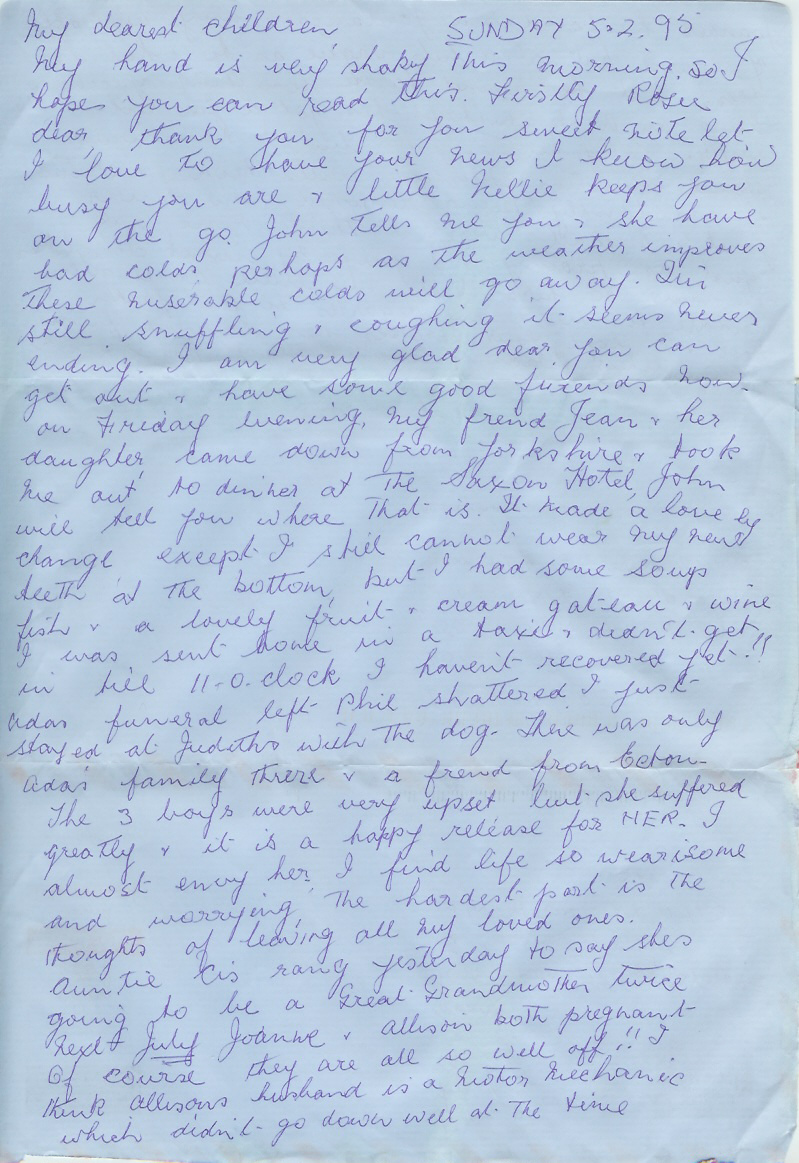 My dearest children, SUNDAY 5.2.95
My hand is very shaky this morning. So I
hopes you can read this. Firstly Rosie
dear, thank you for you sweet note let
I love to have your news I know how
busy you are & little Nellie keeps you
on the go. John tells me you & she have
bad colds, perhaps as the weather improves
these miserable colds will go away. I'm
still snuffling & coughing it seems never
ending. I am very glad dear you can
get out & have some good friends now.
on Friday evening, my frend Jean & her
daughter, came down from Yorkshire & took
me out to dinner at the Saxon Hotel, John
will tell you where that is. It made a lovely
change except I still cannot wear my new
teeth at the bottom, but I had some soup
fish & a lovely fruit & cream gateau & wine
I was sent home in a taxi & didn't get
in till 11-0.clock I haven't recovered yet!!
adas funeral left Phil shattered I just
stayed at Judiths with the dog. There was only
adas family there & a frend from
The 3 boys were very upset but she suffered
greatly & it is a happy release for HER. I
almost envy her, I find life so wearisome
and worrying, the hardest part is the
thoughts of leaving all my loved ones.
Auntie Cis rang yesterday to say shes
going to be a Great-Grandmother twice
next July Joanne & allison both pregnant
Of course they are all so well off!! I
think allisons husband is a Motor Mechanic
which didn't go down well at the time